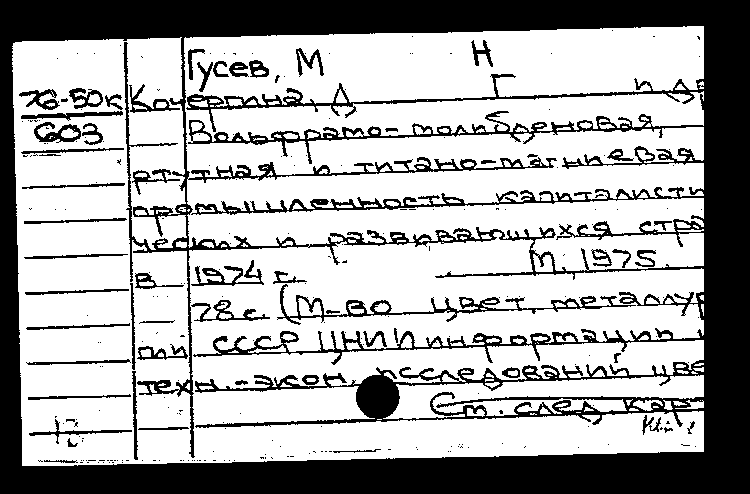 Гусев, М Н
76-50к Кочергина, Д Г и др
603 Вольфрамо-молибденовая,
ртутная и титано-магниевая
промышленность капиталисти
ческих и развивающихся стра
в 1974 г. М., 1975.
78 с. (М-во цвет. металлур
гии СССР ЦНИИ информации и
техн.-экон. исследований цве
См. след. кар